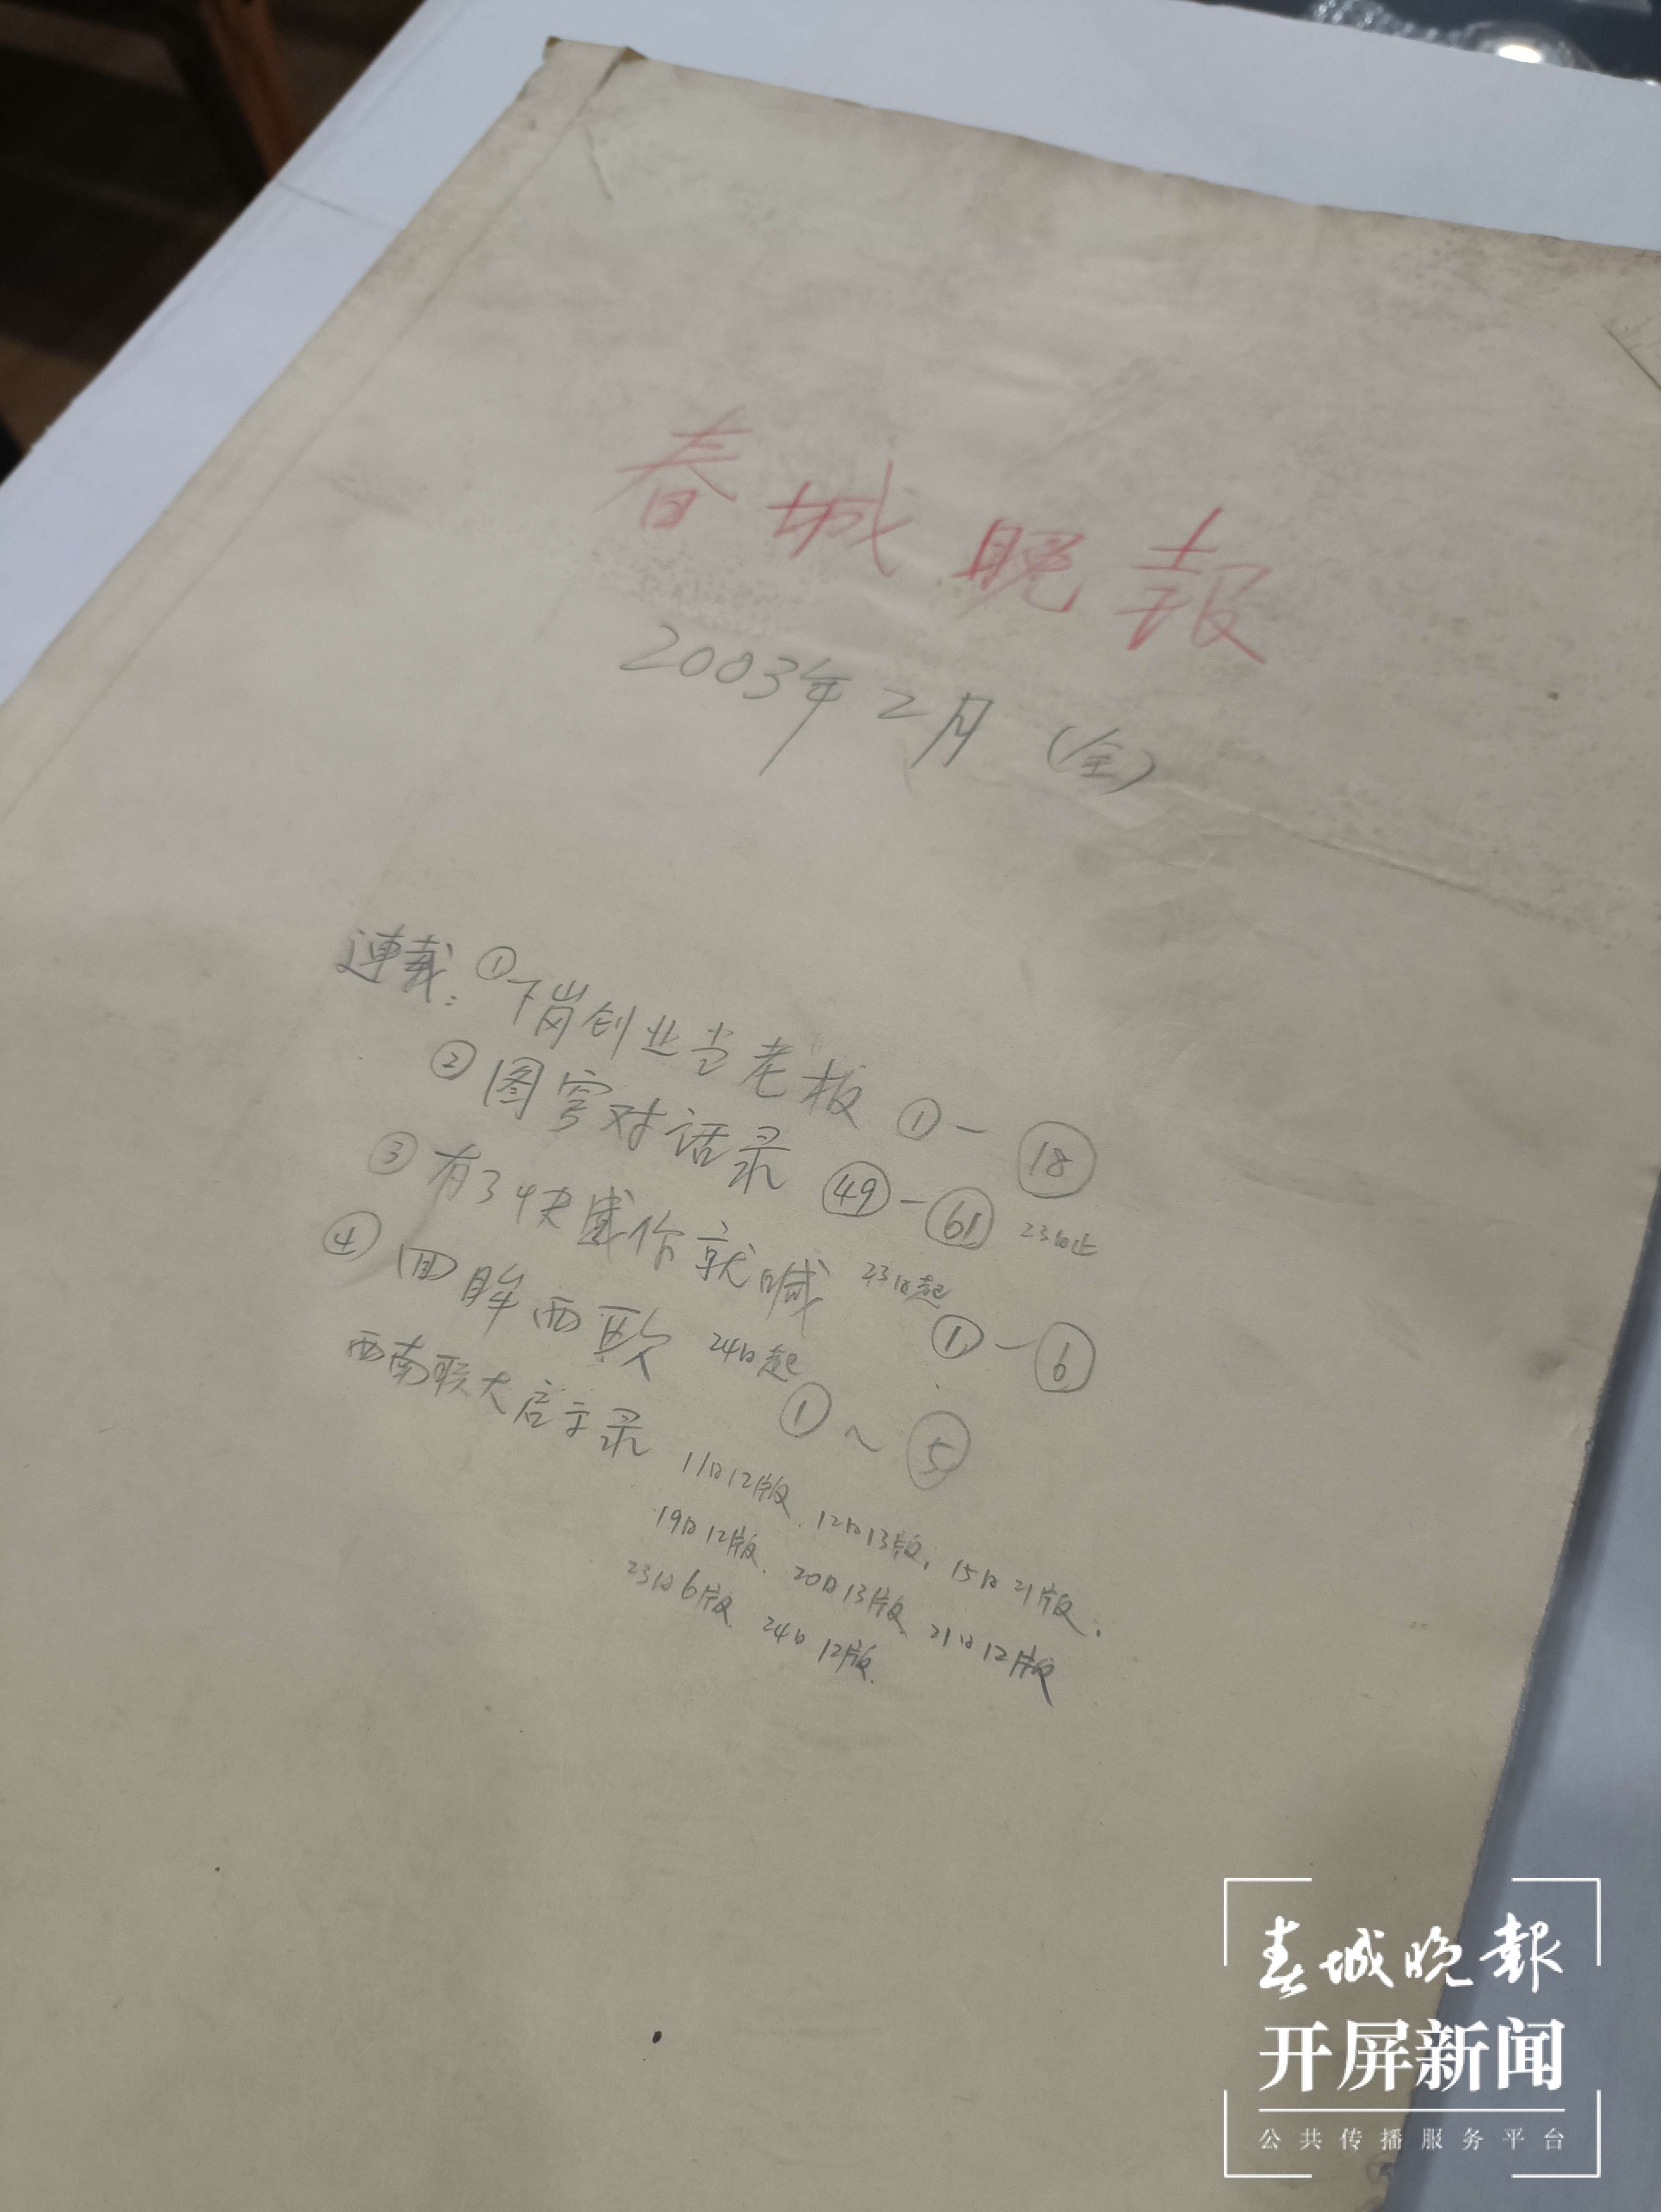 春城晚報
2003年2月(全)
連載:①下岗创业当老板 ①-⑱
②图穷对话录 ㊾-(61) 23日止
③有了快感你就喊 23日起 ①-⑥
④回眸西欧 24日起 ①~⑤
西南联大启示录 11日12版、12日13版、15日21版、
19日12版、20日13版、21日12版
23日6版、24日12版
春城晚報
开屏新闻
公共传播服务平台